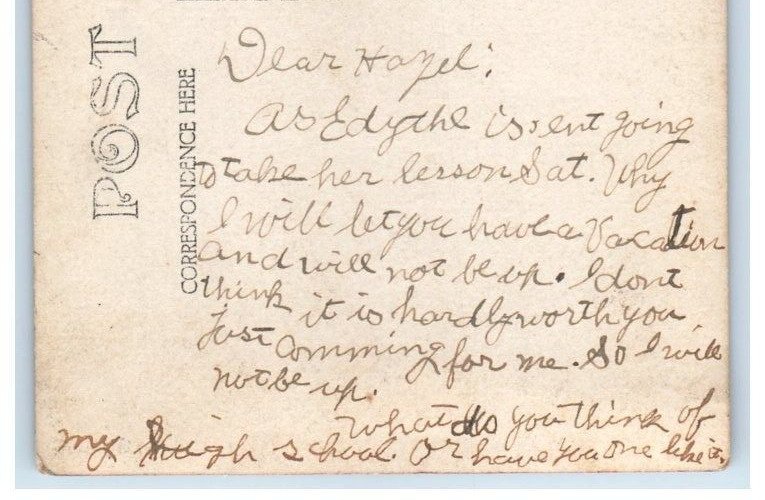 POST
CORRESPONDENCE HERE
Dear Hazel;
As Edythe issent going
to take her lesson Sat. Why
I will let you have a Vacation
and will not be up. I dont
think it is hardly worth you
Just comming for me. So I will
not be up.
What do you think of
my high school. Or have you one like it.